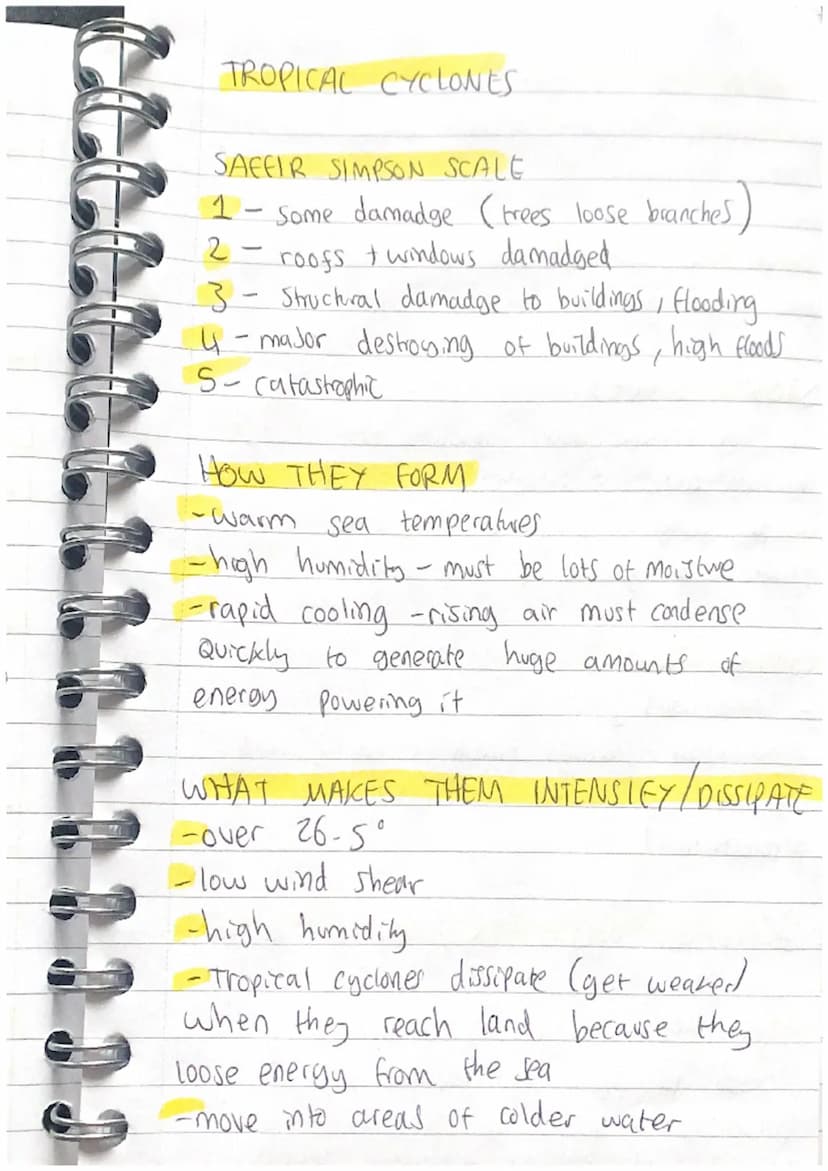 TROPICAL CYCLONES
SAFFIR SIMPSON SCALE
1 - some damadge (trees loose branches)
2 - roofs + windows damadged
3 - Structural damadge to buildings, flooding
4 - major destroying of buildings, high floods
5 - catastrophic
HOW THEY FORM
- warm sea temperatures
- high humidity - must be lots of moisture
- rapid cooling - rising air must condense
quickly to generate huge amounts of
energy powering it
WHAT MAKES THEM INTENSIFY/DISSIPATE
- over 26-5°
- low wind shear
- high humidity
- Tropical cyclones dissipate (get weaker)
when they reach land because they
loose energy from the sea
- move into areas of colder water